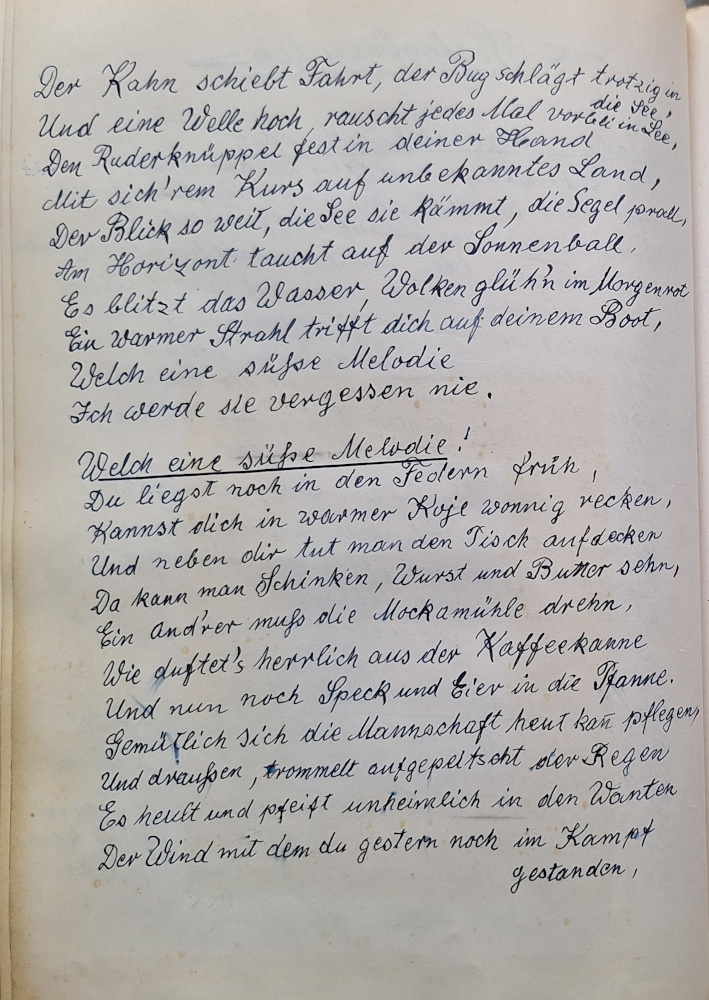 Der Kahn schiebt Fahrt, der Bug schlägt trotzig in
die See,
Und eine Welle hoch, rauscht jedes Mal vorbei in Lee,
Den Ruderknüppel fest in deiner Hand
Mit sich'rem Kurs auf unbekanntes Land,
Der Blick so weit, die See sie kämmt, die Segel prall,
Am Horizont taucht auf der Sonnenball.
Es blitzt das Wasser, Wolken glüh'n im Morgenrot
Ein warmer Strahl trifft dich auf deinem Boot,
Welch eine süße Melodie
Ich werde sie vergessen nie.
Welch eine süße Melodie!
Du liegst noch in den Federn früh,
Kannst dich in warmer Koje wonnig recken,
Und neben dir tut man den Tisch aufdecken
Da kann man Schinken, Wurst und Butter sehn,
Ein and'rer muß die Mockamühle drehn,
Wie duftet's herrlich aus der Kaffeekanne
Und nun noch Speck und Eier in die Pfanne.
Gemütlich sich die Mannschaft heut kan̄ pflegen,
Und draußen, trommelt aufgepeitscht der Regen
Es heult und pfeift unheimlich in den Wanten
Der Wind mit dem du gestern noch im Kampf
gestanden,